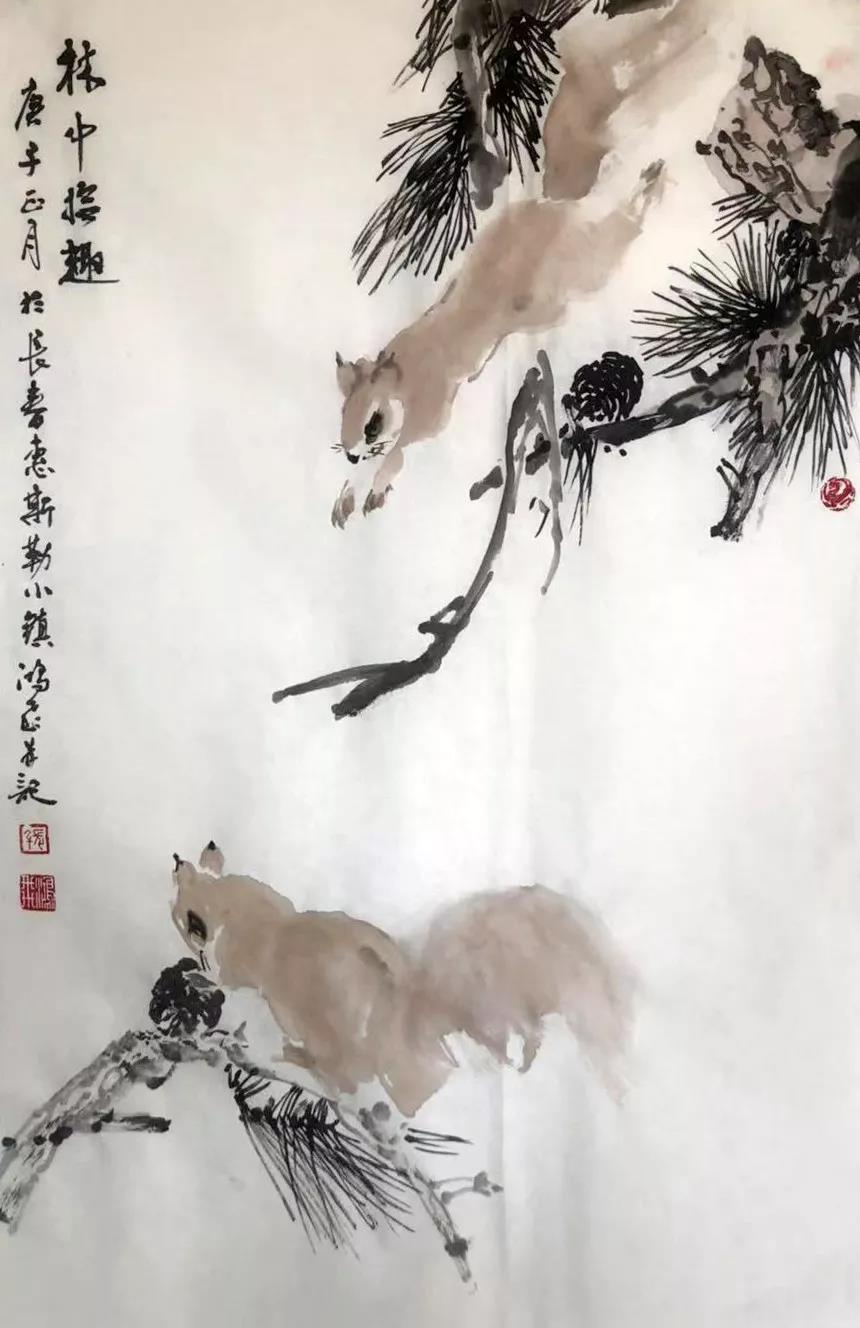 林中拾趣
庚子正月於長春惠斯勒小鎮鴻 記